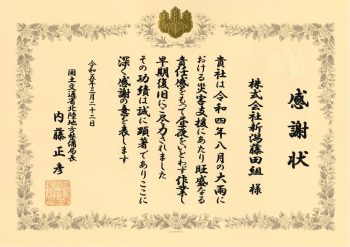 感謝状
株式会社新潟藤田組 様
貴社は令和四年八月の大雨に
おける災害支援にあたり旺盛なる
責任感をもって昼夜をいとわず作業し
早期復旧にご尽力されました
その功績は誠に顕著でありここに
深く感謝の意を表します
令和五年三月二十二日
国土交通省北陸地方整備局長
内藤正彦